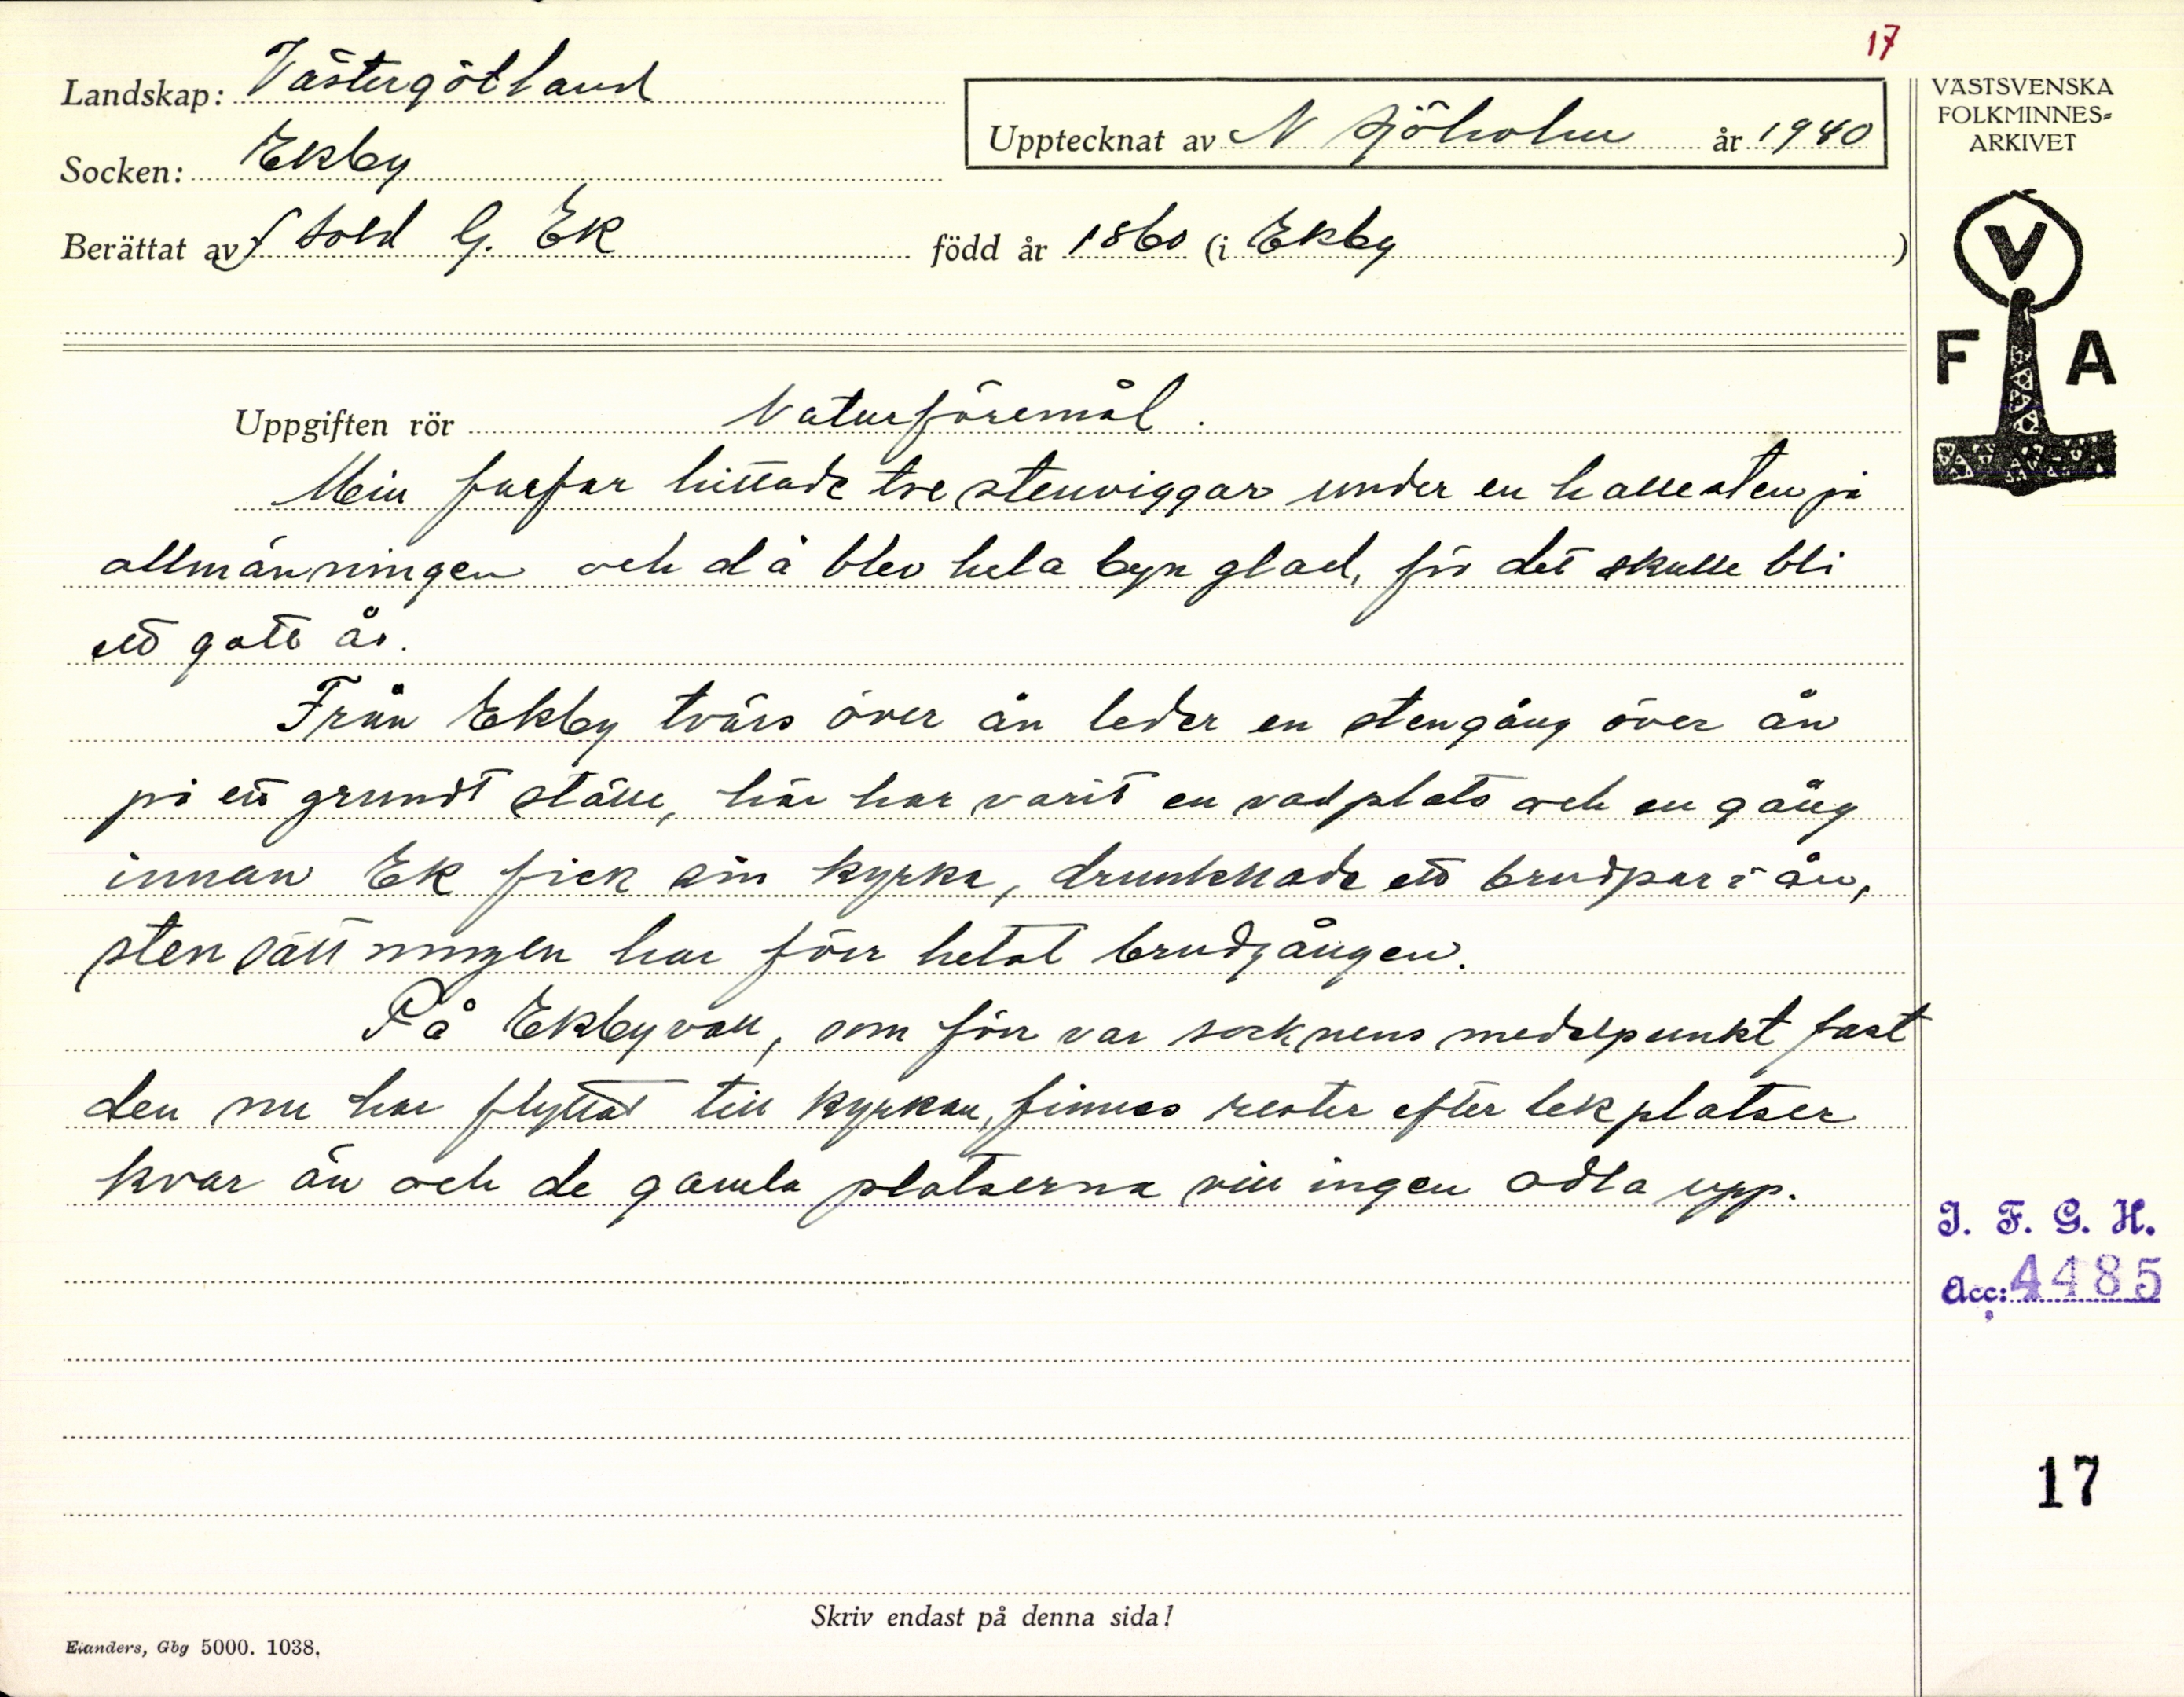 17
Landskap: Västergötland
Socken: Ekby
Upptecknat av N Sjöholm år 1940
Berättat av f sold G. Ek född år 1860 (i Ekby )
VÄSTSVENSKA
FOLKMINNES=
ARKIVET
V
F A
Uppgiften rör Naturföremål.
Min farfar hittade tre stenviggar under en hallesten på
allmänningen och då blev hela byn glad, för det skulle bli
ett gott år.
Från Ekby tvärs över ån leder en stengång över ån
på ett grundt ställe, här har varit en vadplats och en gång
innan Ek fick sin kyrka, drunknade ett brudpar i ån,
stensättningen har förr hetat brudgången.
På Ekbyvall, som förr var socknens medelpunkt fast
den nu har flyttat till kyrkan, finnes rester efter lekplatser
kvar än och de gamla platserna vill ingen odla upp.
I. F. G. H.
Acc: 4485
17
Skriv endast på denna sida!
Elanders, Gbg 5000. 1038.